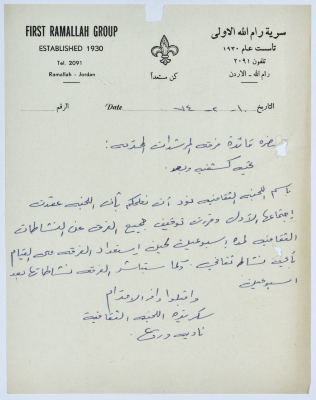 FIRST RAMALLAH GROUP
ESTABLISHED 1930
Tel. 2091
Ramallah - Jordan
كن مستعداً
سرية رام الله الاولى
تأسست عام ١٩٣٠
تلفون ٢٠٩١
رام الله - الاردن
التاريخ ١٠ - ٢ - ٧٤ Date الرقم
حضرة قائدة فرقة المرشدات المحترمه :
تحية كشفيه وبعد
باسم اللجنه الثقافيه نود أن نعلمكم بأن اللجنه عقدت
إجتماعها الأول وقررت توقيف جميع الفرق عن النشاطات
الثقافيه لمدة إسبوعين لحين إستعداد الفرقه في القيام
بأي نشاط ثقافي . كما ستباشر الفرق نشاطاتها بعد
اسبوعين
واقبلوا وافر الاحترام
سكرتيرة اللجنه الثقافية
ناديه